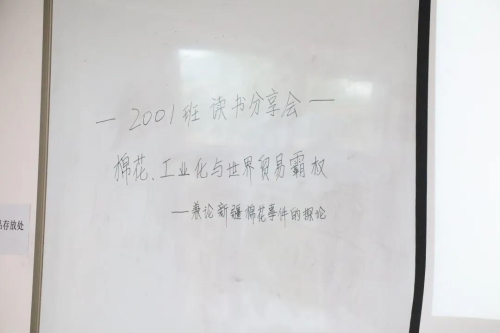 — 2001班 读书分享会 —
棉花、工业化与世界贸易霸权
——兼论新疆棉花事件的探论
存放处